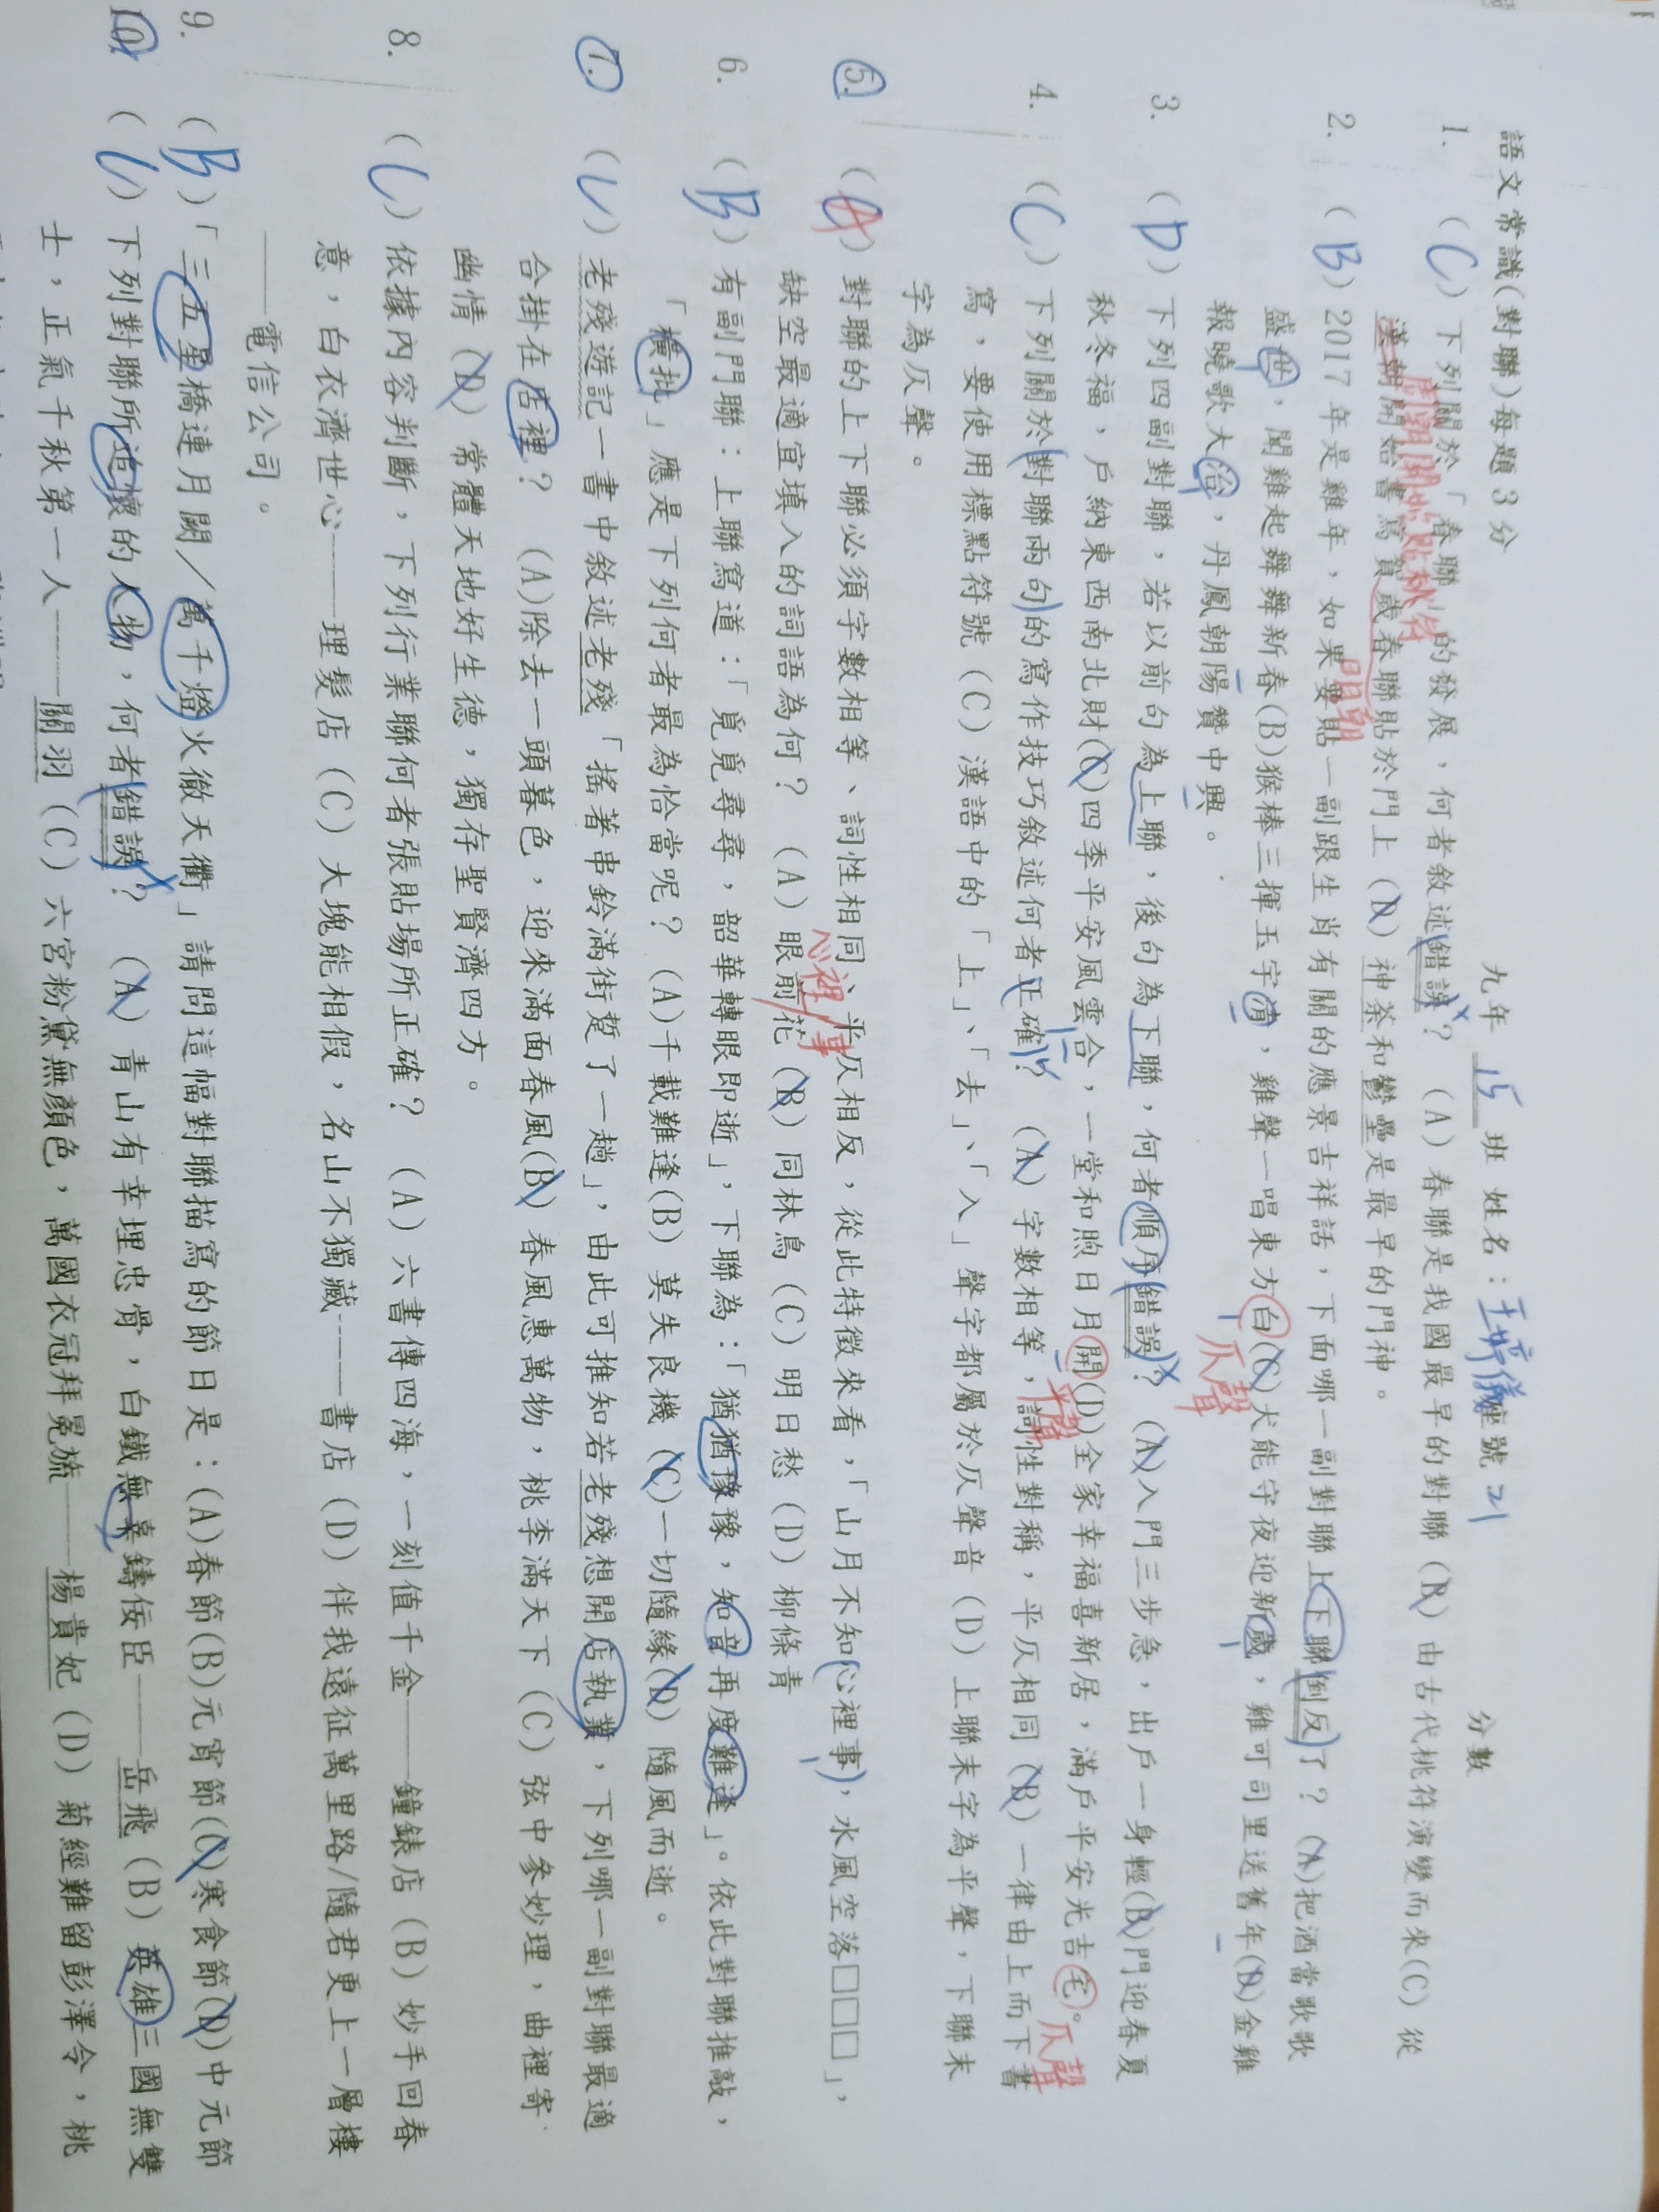 語文常識(對聯)每題3分 九年 15 班 姓名: 座號 21 分數
1. (C) 下列關於「春聯」的發展,何者敘述錯誤? (A) 春聯是我國最早的對聯 (B) 由古代桃符演變而來(C) 從
漢朝開始書寫賀歲春聯貼於門上 (D) 神荼和鬱壘是最早的門神。
明朝
2. (B) 2017 年是雞年,如果要貼一副跟生肖有關的應景吉祥話,下面哪一副對聯上下聯倒反了? (A)把酒當歌歌
盛世,聞雞起舞舞新春(B)猴棒三揮玉宇清,雞聲一唱東方白(C)犬能守夜迎新歲,雞可司里送舊年(D)金雞
報曉歌大治,丹鳳朝陽贊中興。
3. (D) 下列四副對聯,若以前句為上聯,後句為下聯,何者順序錯誤? (A)入門三步急,出戶一身輕(B)門迎春夏
秋冬福,戶納東西南北財(C)四季平安風雲合,一堂和煦日月開(D)全家幸福喜新居,滿戶平安光吉宅。
4. (C) 下列關於對聯兩句的寫作技巧敘述何者正確? (A) 字數相等,詞性對稱,平仄相同 (B) 一律由上而下書
寫,要使用標點符號 (C) 漢語中的「上」、「去」、「入」聲字都屬於仄聲音 (D) 上聯末字為平聲,下聯末
字為仄聲。
5. (A) 對聯的上下聯必須字數相等、詞性相同、平仄相反,從此特徵來看,「山月不知心裡事,水風空落□□□」,
心裡事
缺空最適宜填入的詞語為何? (A) 眼前花 (B) 同林鳥 (C) 明日愁 (D) 柳條青
6. (B) 有副門聯:上聯寫道:「覓覓尋尋,韶華轉眼即逝」,下聯為:「猶猶豫豫,知音再度難逢」。依此對聯推敲,
「橫批」應是下列何者最為恰當呢? (A)千載難逢(B) 莫失良機 (C)一切隨緣(D) 隨風而逝。
7. (C) 老殘遊記一書中敘述老殘「搖著串鈴滿街踅了一趟」,由此可推知若老殘想開店執業,下列哪一副對聯最適
合掛在店裡? (A)除去一頭暮色,迎來滿面春風(B) 春風惠萬物,桃李滿天下 (C) 弦中參妙理,曲裡寄
幽情 (D) 常體天地好生德,獨存聖賢濟四方。
8. (C) 依據內容判斷,下列行業聯何者張貼場所正確? (A) 六書傳四海,一刻值千金——鐘錶店 (B) 妙手回春
意,白衣濟世心——理髮店 (C) 大塊能相假,名山不獨藏----書店 (D) 伴我遠征萬里路/隨君更上一層樓
——電信公司。
9. (B)「三五星橋連月闕/萬千燈火徹天衢」請問這幅對聯描寫的節日是:(A)春節(B)元宵節(C)寒食節(D)中元節
10. (C) 下列對聯所追懷的人物,何者錯誤? (A) 青山有幸埋忠骨,白鐵無辜鑄佞臣——岳飛 (B) 英雄三國無雙
士,正氣千秋第一人——關羽 (C) 六宮粉黛無顏色,萬國衣冠拜冕旒——楊貴妃 (D) 菊經難留彭澤令,桃